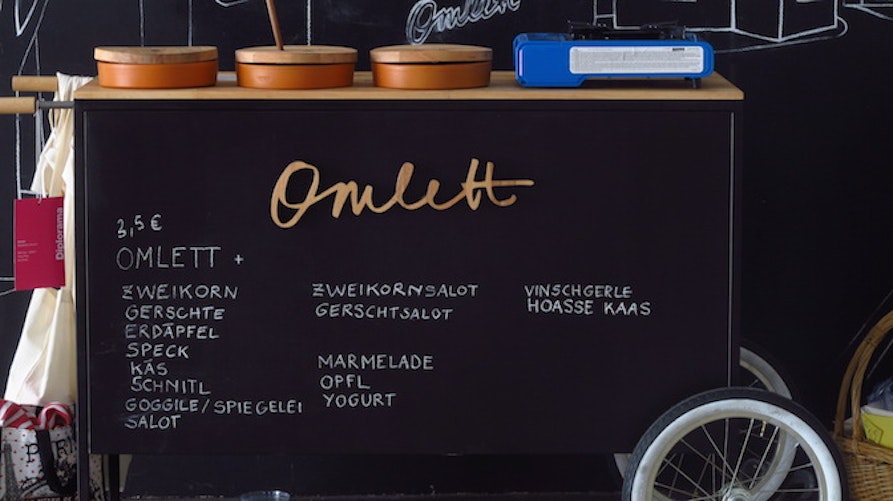 Omlett
Omlett
3,5 €
OMLETT +
ZWEIKORN
GERSCHTE
ERDÄPFEL
SPECK
KÄS
SCHNITL
GOGGILE/SPIEGELEI
SALOT
ZWEIKORNSALOT
GERSCHTSALOT
MARMELADE
OPFL
YOGURT
VINSCHGERLE
HOASSE KAAS
Diplorama